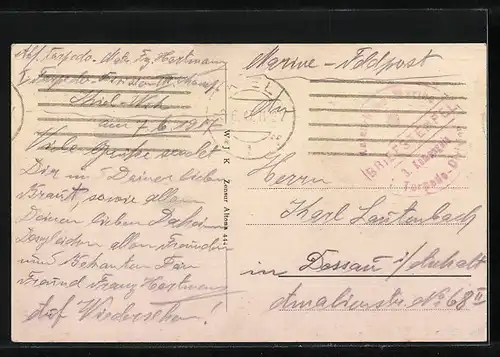 Abs. Torpedo-Matr. Fz. Hartmann
I. Torpedo-Division
Kiel-Wik
am 7.6.1917
Viele Grüsse sendet
Dir u. Deiner lieben
Braut, sowie allen
Deinen lieben Daheim
desgleichen allen Freunden
und Bekannten Dein
Freund Franz Hartmann
Auf Wiedersehen!
W & J. K Zensur Altona 444
Marine-Feldpost
An
Kaiserliche Marine
BRIEFSTEMPEL
3. Torpedo-Div.
Herrn
Karl Lautenbach
in Dessau i/Anhalt
Amalienstr No. 68 II